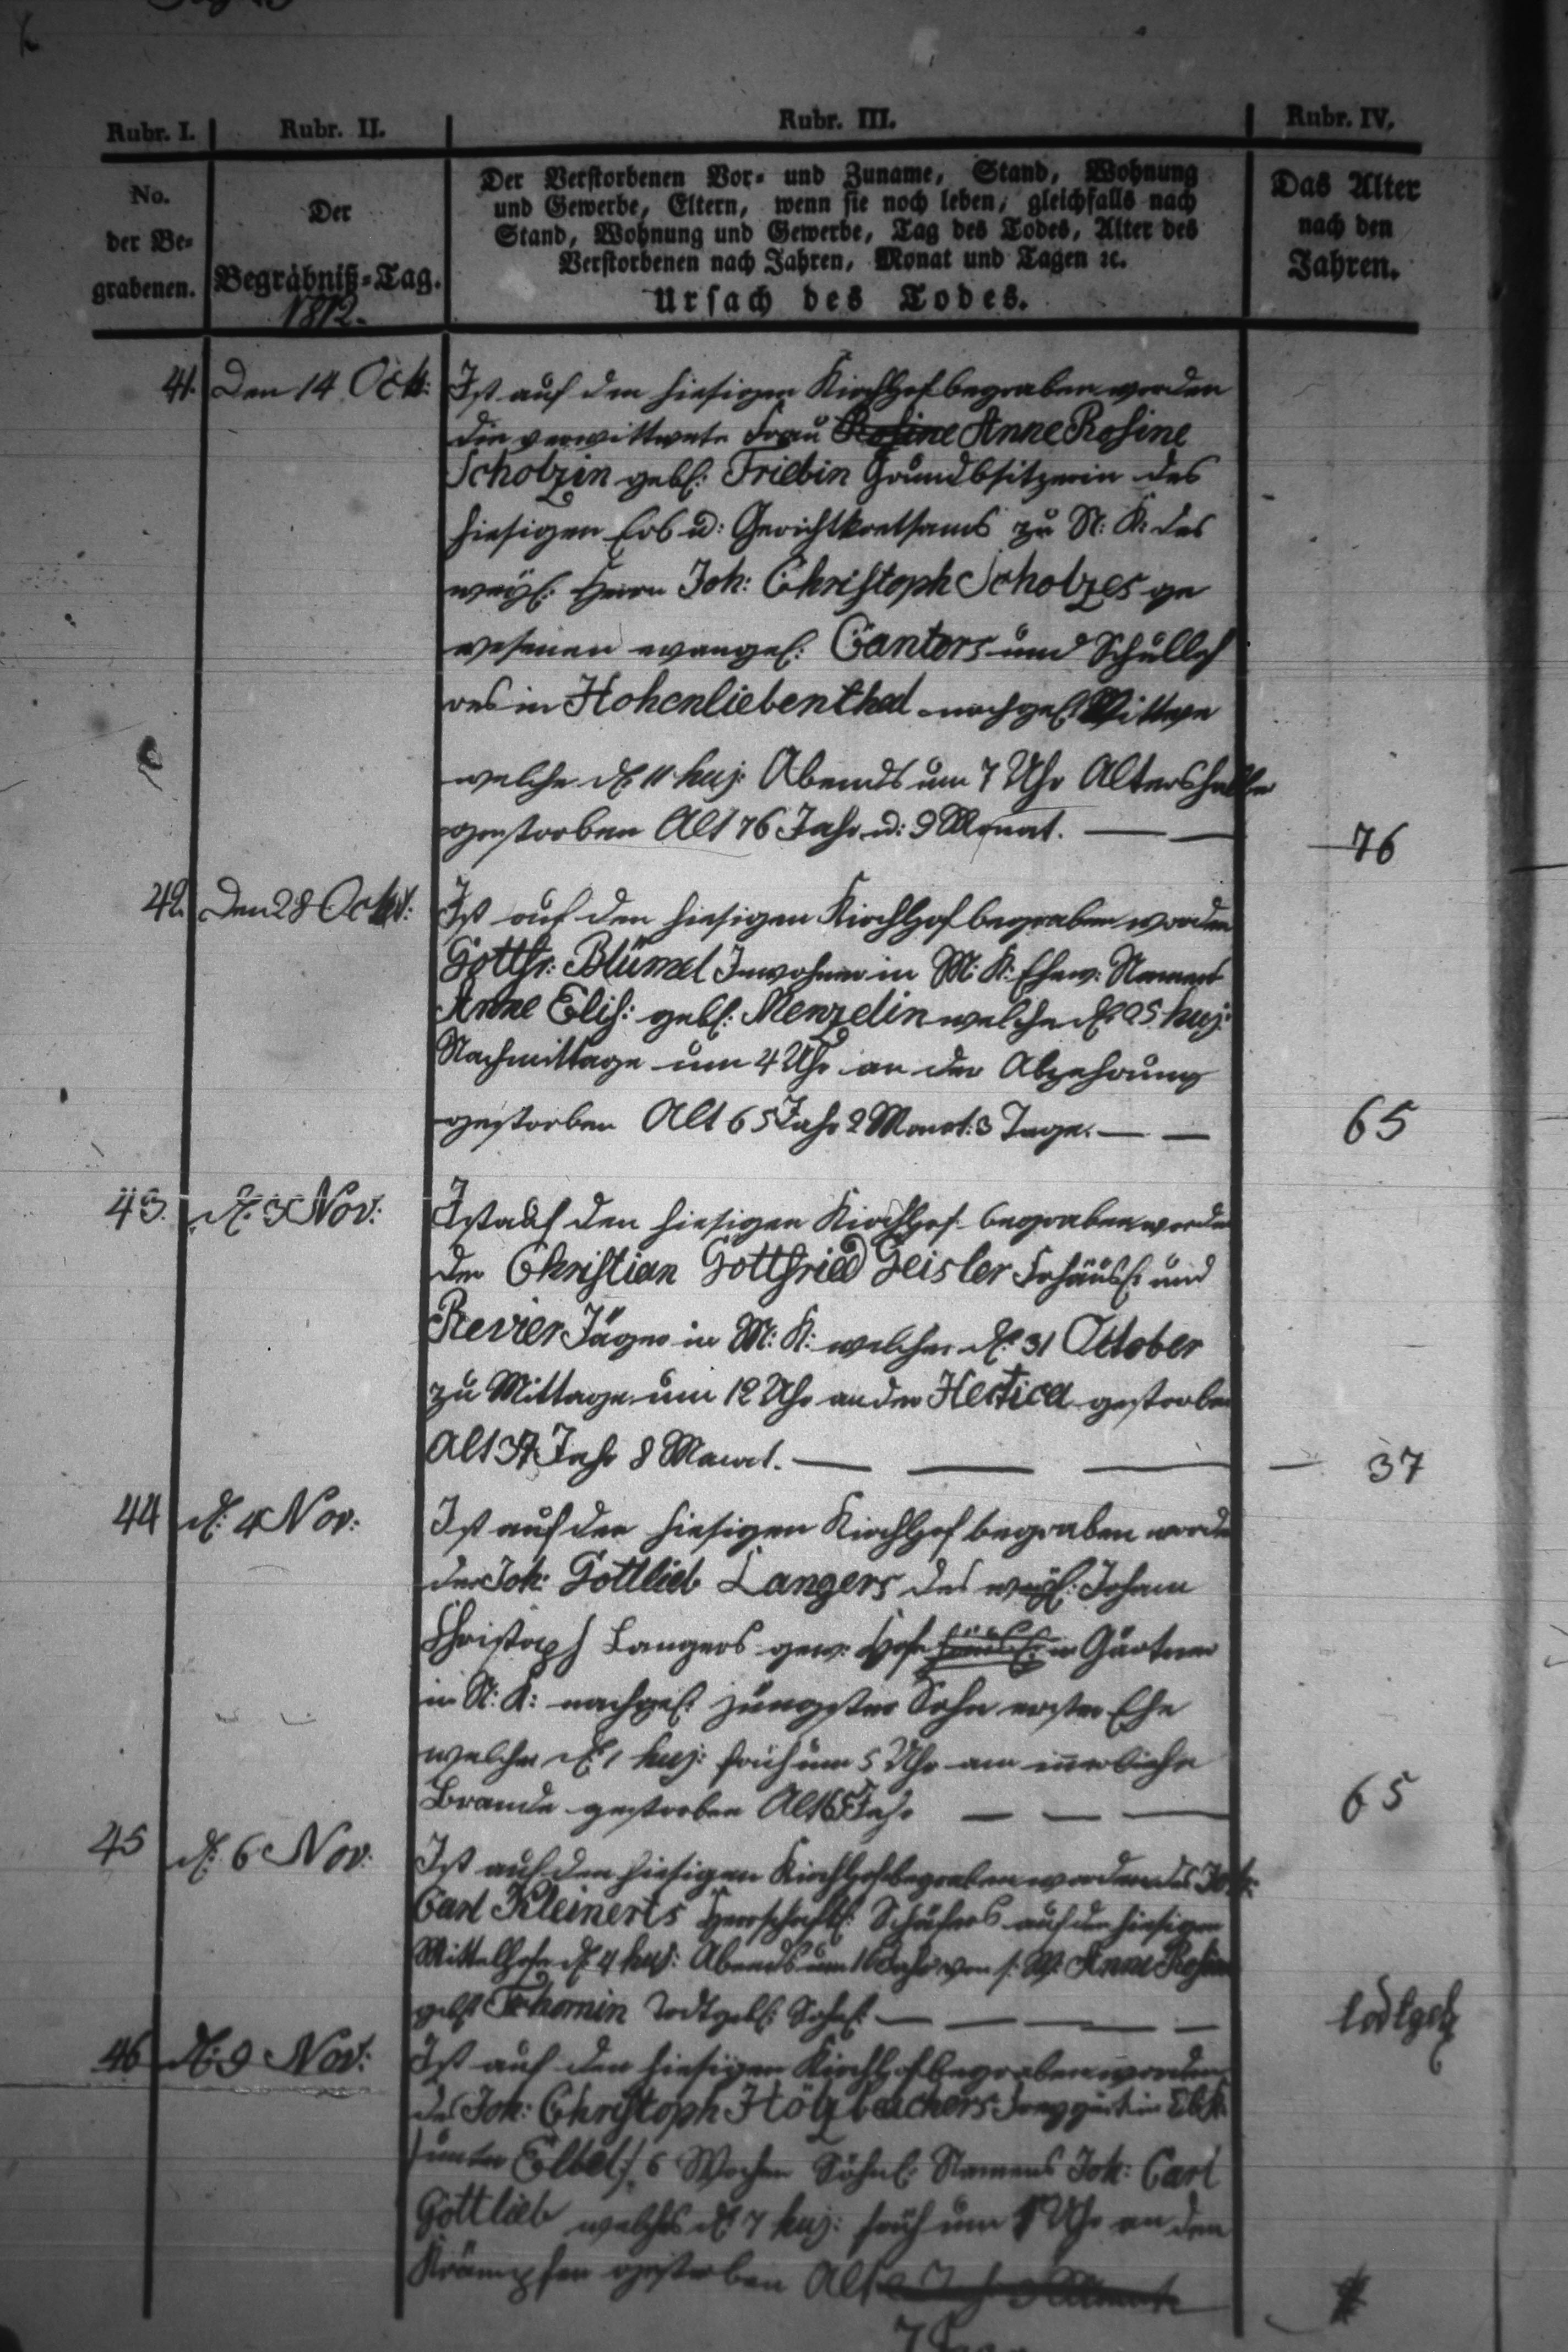 Rubr. I. Rubr. II. Rubr. III. Rubr. IV.
No. der Be- grabenen.
Der Begräbniß-Tag. 1812.
Der Verstorbenen Vor- und Zuname, Stand, Wohnung
und Gewerbe, Eltern, wenn sie noch leben, gleichfalls nach
Stand, Wohnung und Gewerbe, Tag des Todes, Alter des
Verstorbenen nach Jahren, Monat und Tagen ꝛc.
Ursach des Todes.
Das Alter nach den Jahren.
41. Den 14 Oct: Ist auf den hiesigen Kirchhof begraben worden
die verwittwete Frau Rosine Anne Rosine
Scholzin geb: Friebin Grundbsitzerin des
hiesigen Erb u: Gerichtkretsams zu N: K: des
weyl: Herrn Joh: Christoph Scholzes ge
wesenen evangel: Cantors und Schulleh
res in Hohenliebenthal nachgel: Wittwe
welche d: 11 huj: Abends um 7 Uhr Altershalber
gestorben Alt 76 Jahr u: 9 Monat. — — 76
42. Den 28 Octbr: Ist auf den hiesigen Kirchhof begraben worden
Gottfr: Blümel Inwohner in M: K: Ehew: Namens
Anne Elis: geb: Menzelin welche d: 25 huj:
Nachmittage um 4 Uhr an der Abzehrung
gestorben Alt 65 Jahr 2 Monat: 3 Tage. — — 65
43. d: 3 Nov: Ist auf den hiesigen Kirchhof begraben worden
der Christian Gottfried Geisler Frhäusl: und
Revier Jäger in M: K: welcher d: 31 October
zu Mittage um 12 Uhr an der Hectica gestorben
Alt 37 Jahr 8 Monat. — — — 37
44 d: 4 Nov: Ist auf den hiesigen Kirchhof begraben worden
der Joh: Gottlieb Langers des weyl: Johann
Christoph Langers gew: Hofe Gärtner
in N: K: nachgel: jüngster Sohn erster Ehe
welcher d: 1 huj: früh um 5 Uhr am innerlichen
Brande gestorben Alt 65 Jahr — — — 65
45 d: 6 Nov: Ist auf den hiesigen Kirchhof begraben worden des Joh:
Carl Kleinerts Herrschaftl: Schäfers auf den hiesigen
Mittelhofe d: 4 huj: Abends um 10 Uhr von s: W: Anne Rosine
geb: Thomin Todtgeb: Söhnl: — — — — todtgeb
46 d: 9 Nov: Ist auf den hiesigen Kirchhof begraben worden
des Joh: Christoph Hölzbechers
Elbel 6 Wochen Söhnl: Namens Joh: Carl
Gottlieb welches d: 7 huj: früh um Uhr an den
Krämpfen gestorben Alt